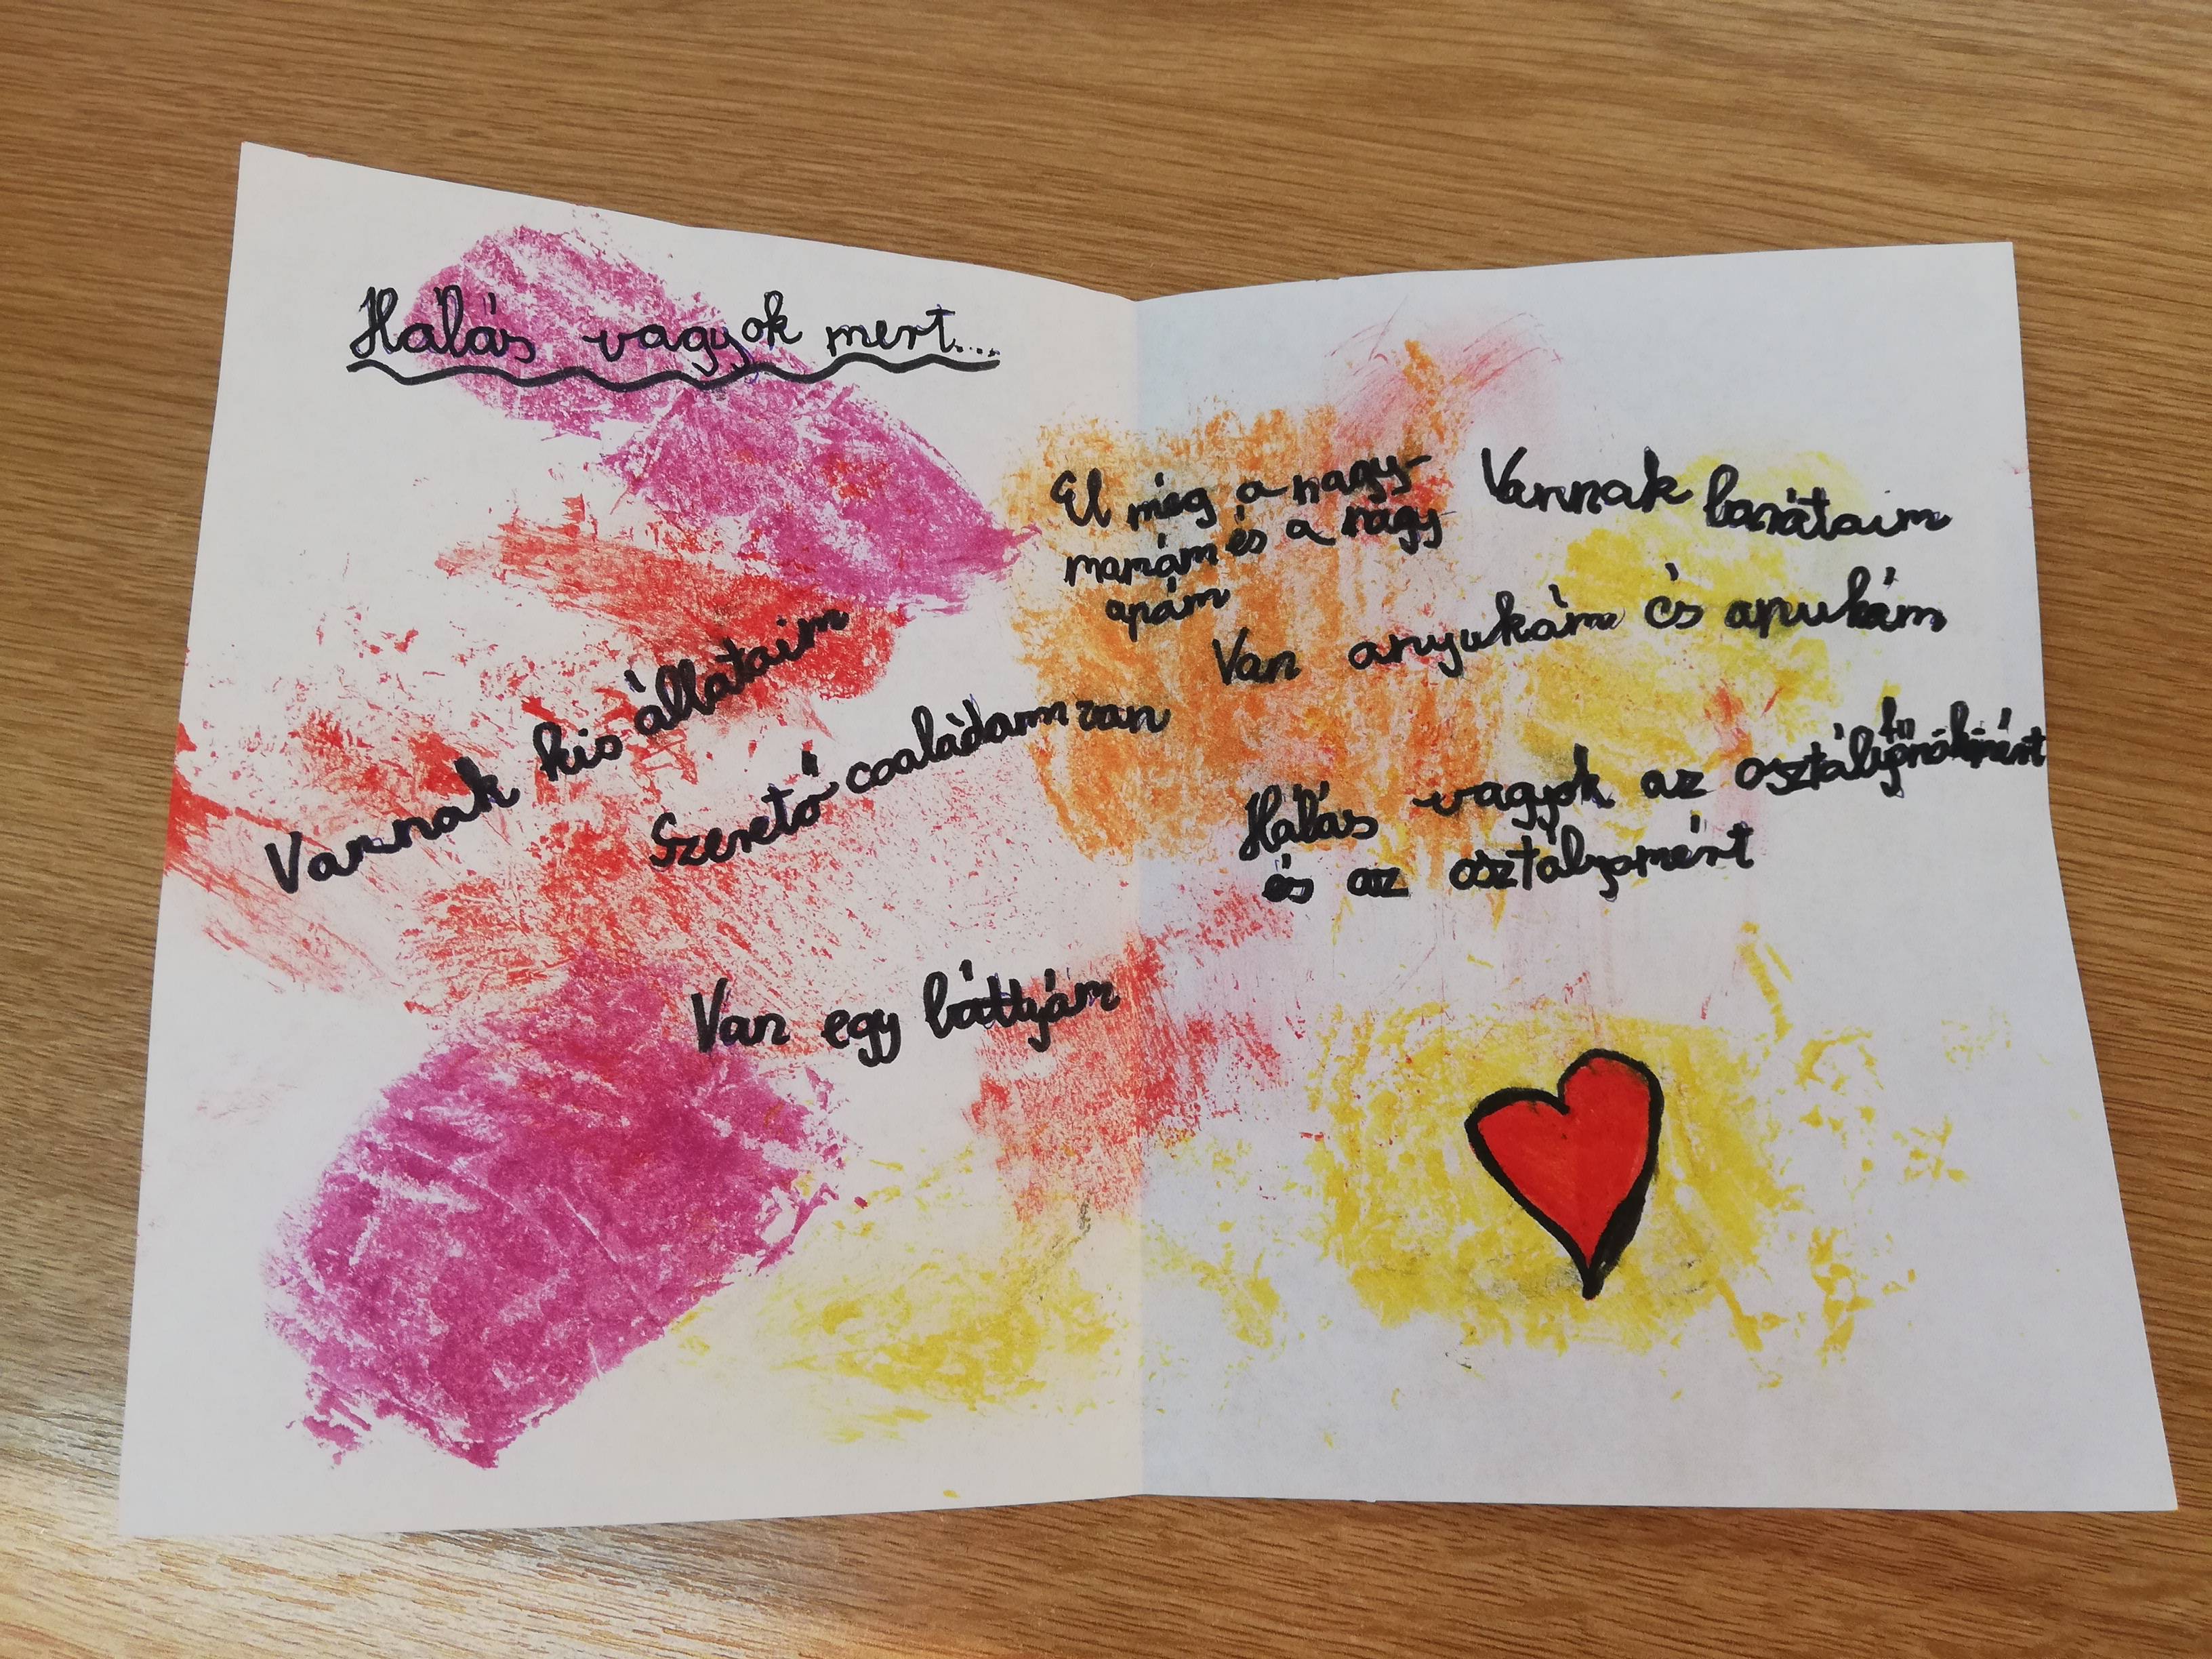 Hálás vagyok mert....
Vannak kis állataim
Szerető családom van
Van egy bátyám
Él még a nagy-
mamám és a nagy
apám
Vannak barátaim
Van anyukám és apukám
Hálás vagyok az osztályfőnökömért
és az osztályomért